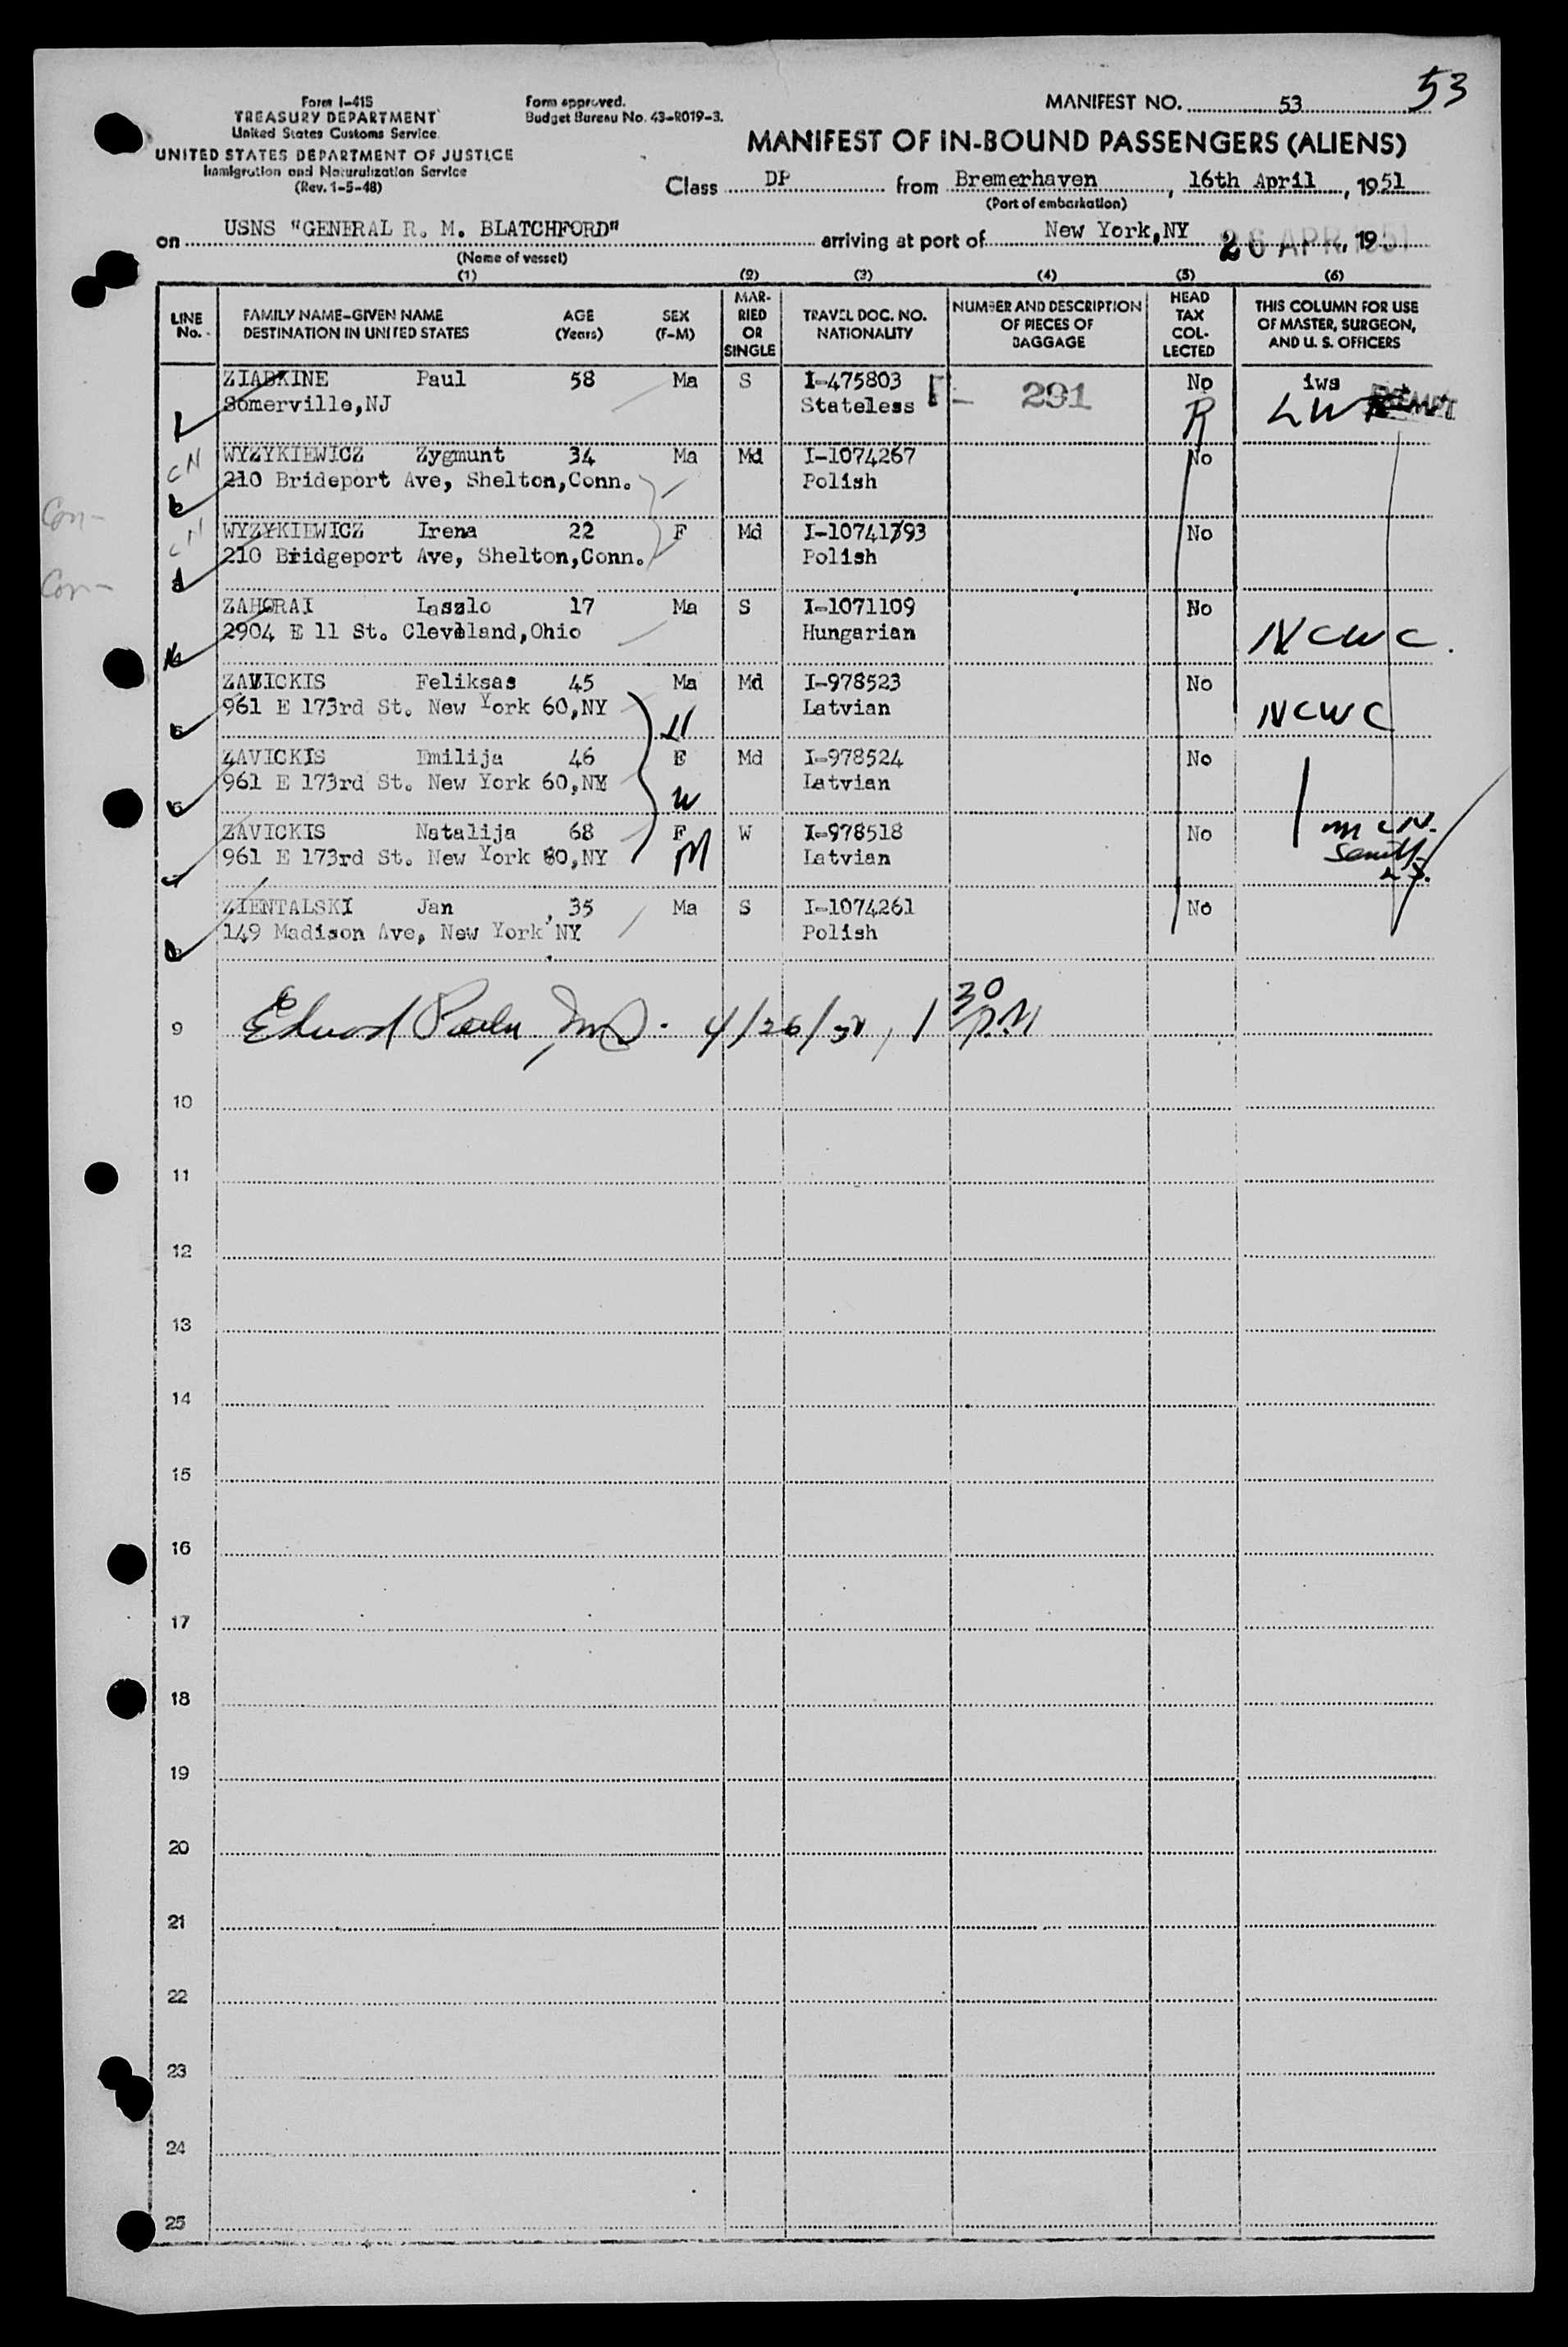 53
Form I-415
TREASURY DEPARTMENT
United States Customs Service
UNITED STATES DEPARTMENT OF JUSTICE
Immigration and Naturalization Service
(Rev. 1-5-48)
Form approved.
Budget Bureau No. 43-R019-3.
MANIFEST NO. 53
MANIFEST OF IN-BOUND PASSENGERS (ALIENS)
Class DP from Bremerhaven, 16th April, 1951
(Port of embarkation)
on USNS "GENERAL R. M. BLATCHFORD" arriving at port of New York,NY 26 APR 1951, 19
(Name of vessel)
(1) (2) (3) (4) (5) (6)
LINE No. FAMILY NAME-GIVEN NAME DESTINATION IN UNITED STATES AGE (Years) SEX (F-M) MARRIED OR SINGLE TRAVEL DOC. NO. NATIONALITY NUMBER AND DESCRIPTION OF PIECES OF BAGGAGE HEAD TAX COLLECTED THIS COLUMN FOR USE OF MASTER, SURGEON, AND U. S. OFFICERS
ZIABKINE Paul 58 Ma S I-475803 291 No iws
Somerville,NJ Stateless R LW EXEMPT
cN WYZYKIEWICZ Zygmunt 34 Ma Md I-1074267 No
210 Brideport Ave, Shelton,Conn. Polish
Con-
cN WYZYKIEWICZ Irena 22 F Md I-1074193 No
210 Bridgeport Ave, Shelton,Conn. Polish
Con-
ZAHORAI Laszlo 17 Ma S I-1071109 No
2904 E 11 St. Cleveland,Ohio Hungarian NCWC.
ZAVICKIS Feliksas 45 Ma Md I-978523 No
961 E 173rd St. New York 60,NY H Latvian NCWC
ZAVICKIS Emilija 46 F Md I-978524 No
961 E 173rd St. New York 60,NY W Latvian
ZAVICKIS Natalija 68 F W I-978518 No
961 E 173rd St. New York 60,NY M Latvian
ZIENTALSKI Jan 35 Ma S I-1074261 No
149 Madison Ave, New York NY Polish
9 Edward 4/26/51, 1 30 PM
10
11
12
13
14
15
16
17
18
19
20
21
22
23
24
25